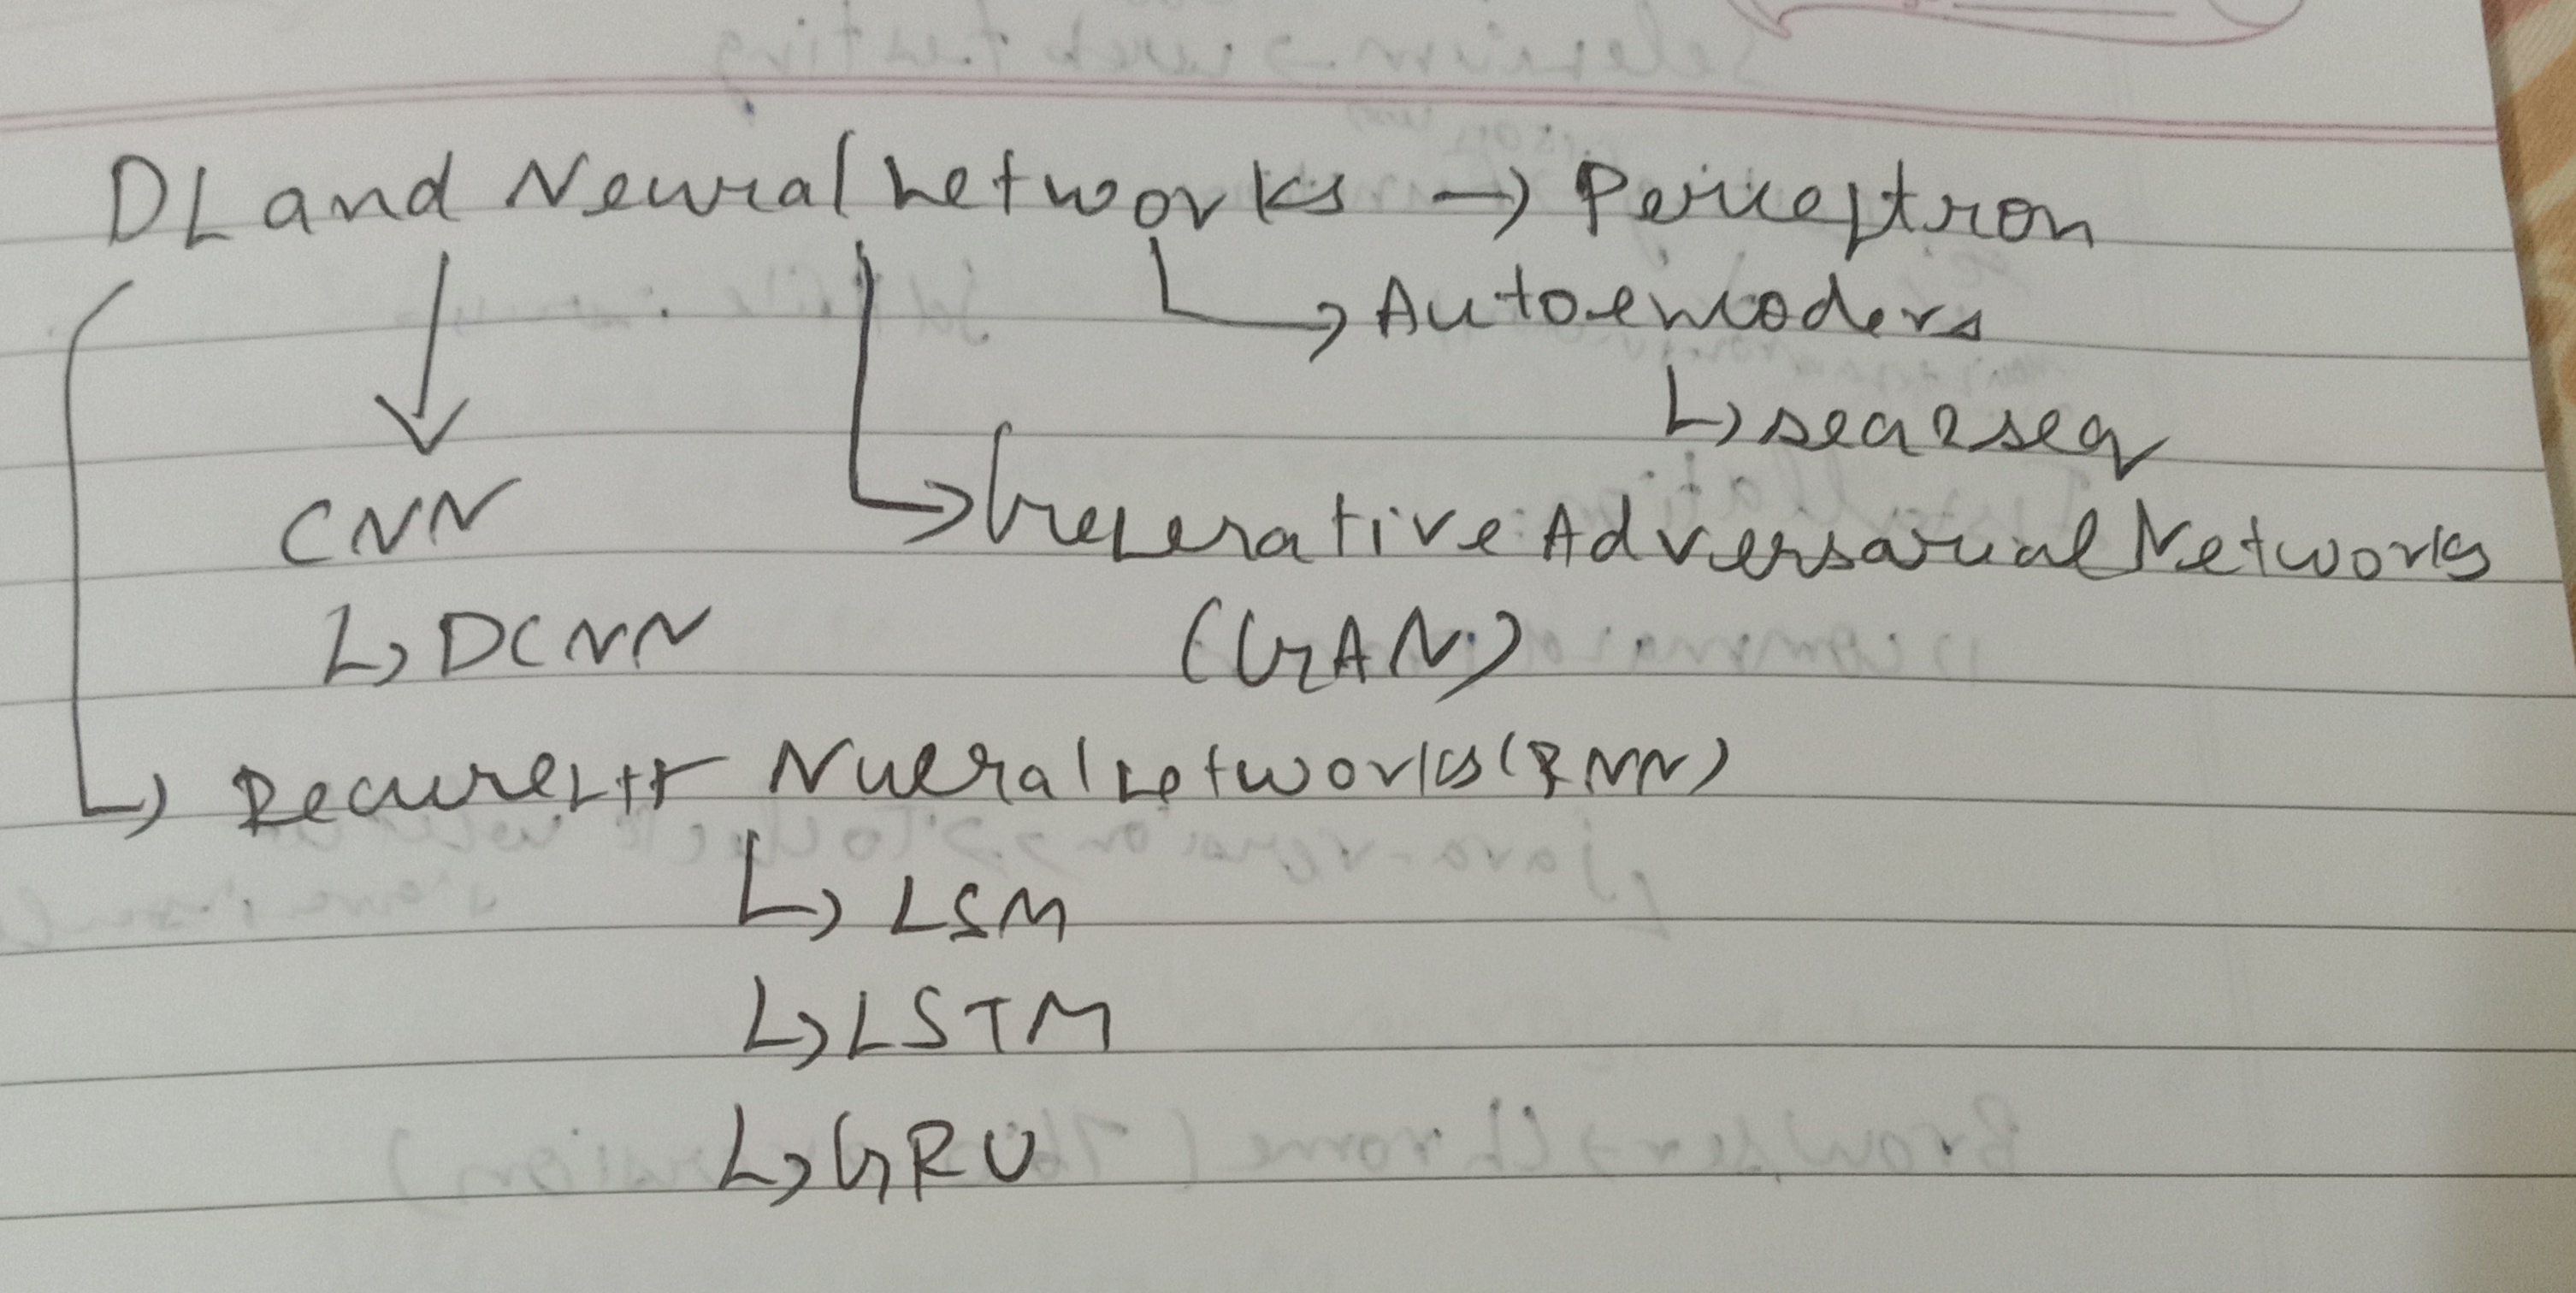 DL and Neural Networks → Perceptron
↳ Autoencoders
↳ seq2seq
CNN
↳ Generative Adversarial Networks
↳ DCNN
(GAN)
↳ Recurrent Nueral Networks (RNN)
↳ LSM
↳ LSTM
↳ GRU